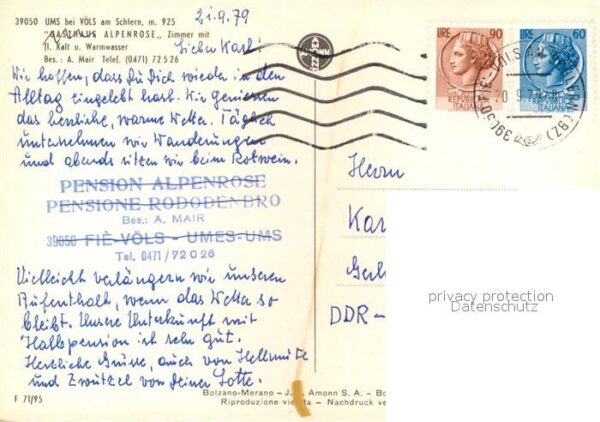 39050 UMS bei VÖLS am Schlern, m. 925
"GASTHAUS ALPENROSE„ Zimmer mit
fl. Kalt u. Warmwasser
Bes.: A. Mair Telef. (0471) 72526
21.9.79
Lieber Karl!
Wir hoffen, dass Du Dich wieder in den
Alltag eingelebt hast. Wir geniessen
das herrliche, warme Wetter. Täglich
unternehmen wir Wanderungen
und abends sitzen wir beim Rotwein.
PENSION ALPENROSE
PENSIONE RODODENDRO
Bes.: A. MAIR
39050 FIÈ-VÖLS - UMES-UMS
Tel. 0471/72026
Vielleicht verlängern wir unseren
Aufenthalt, wenn das Wetter so
bleibt. Unsere Unterkunft mit
Halbpension ist sehr gut.
Herzliche Grüsse, auch von Hellmute
und Zwützel von Deiner Lotte.
F 71/95
Bolzano-Merano - J. F. Amonn S. A. - Bo
Riproduzione vietata - Nachdruck ve
LIRE 90
REPUBBLICA
ITALIANA
LIRE 60
REPUBBLICA
ITALIANA
39050
(BZ)
Herrn
Kar
Gerh
DDR-
privacy protection
Datenschutz